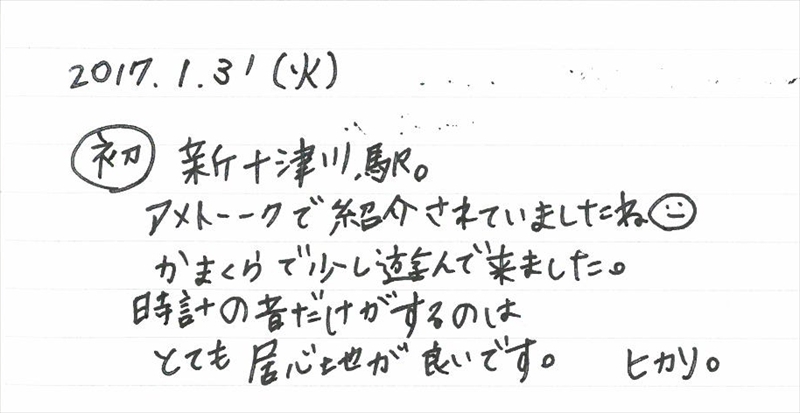 2017.1.31(火)
初 新十津川駅。
アメトーークで紹介されていましたね
かまくらで少し遊んで来ました。
時計の音だけがするのは
とても居心地が良いです。 ヒカリ。